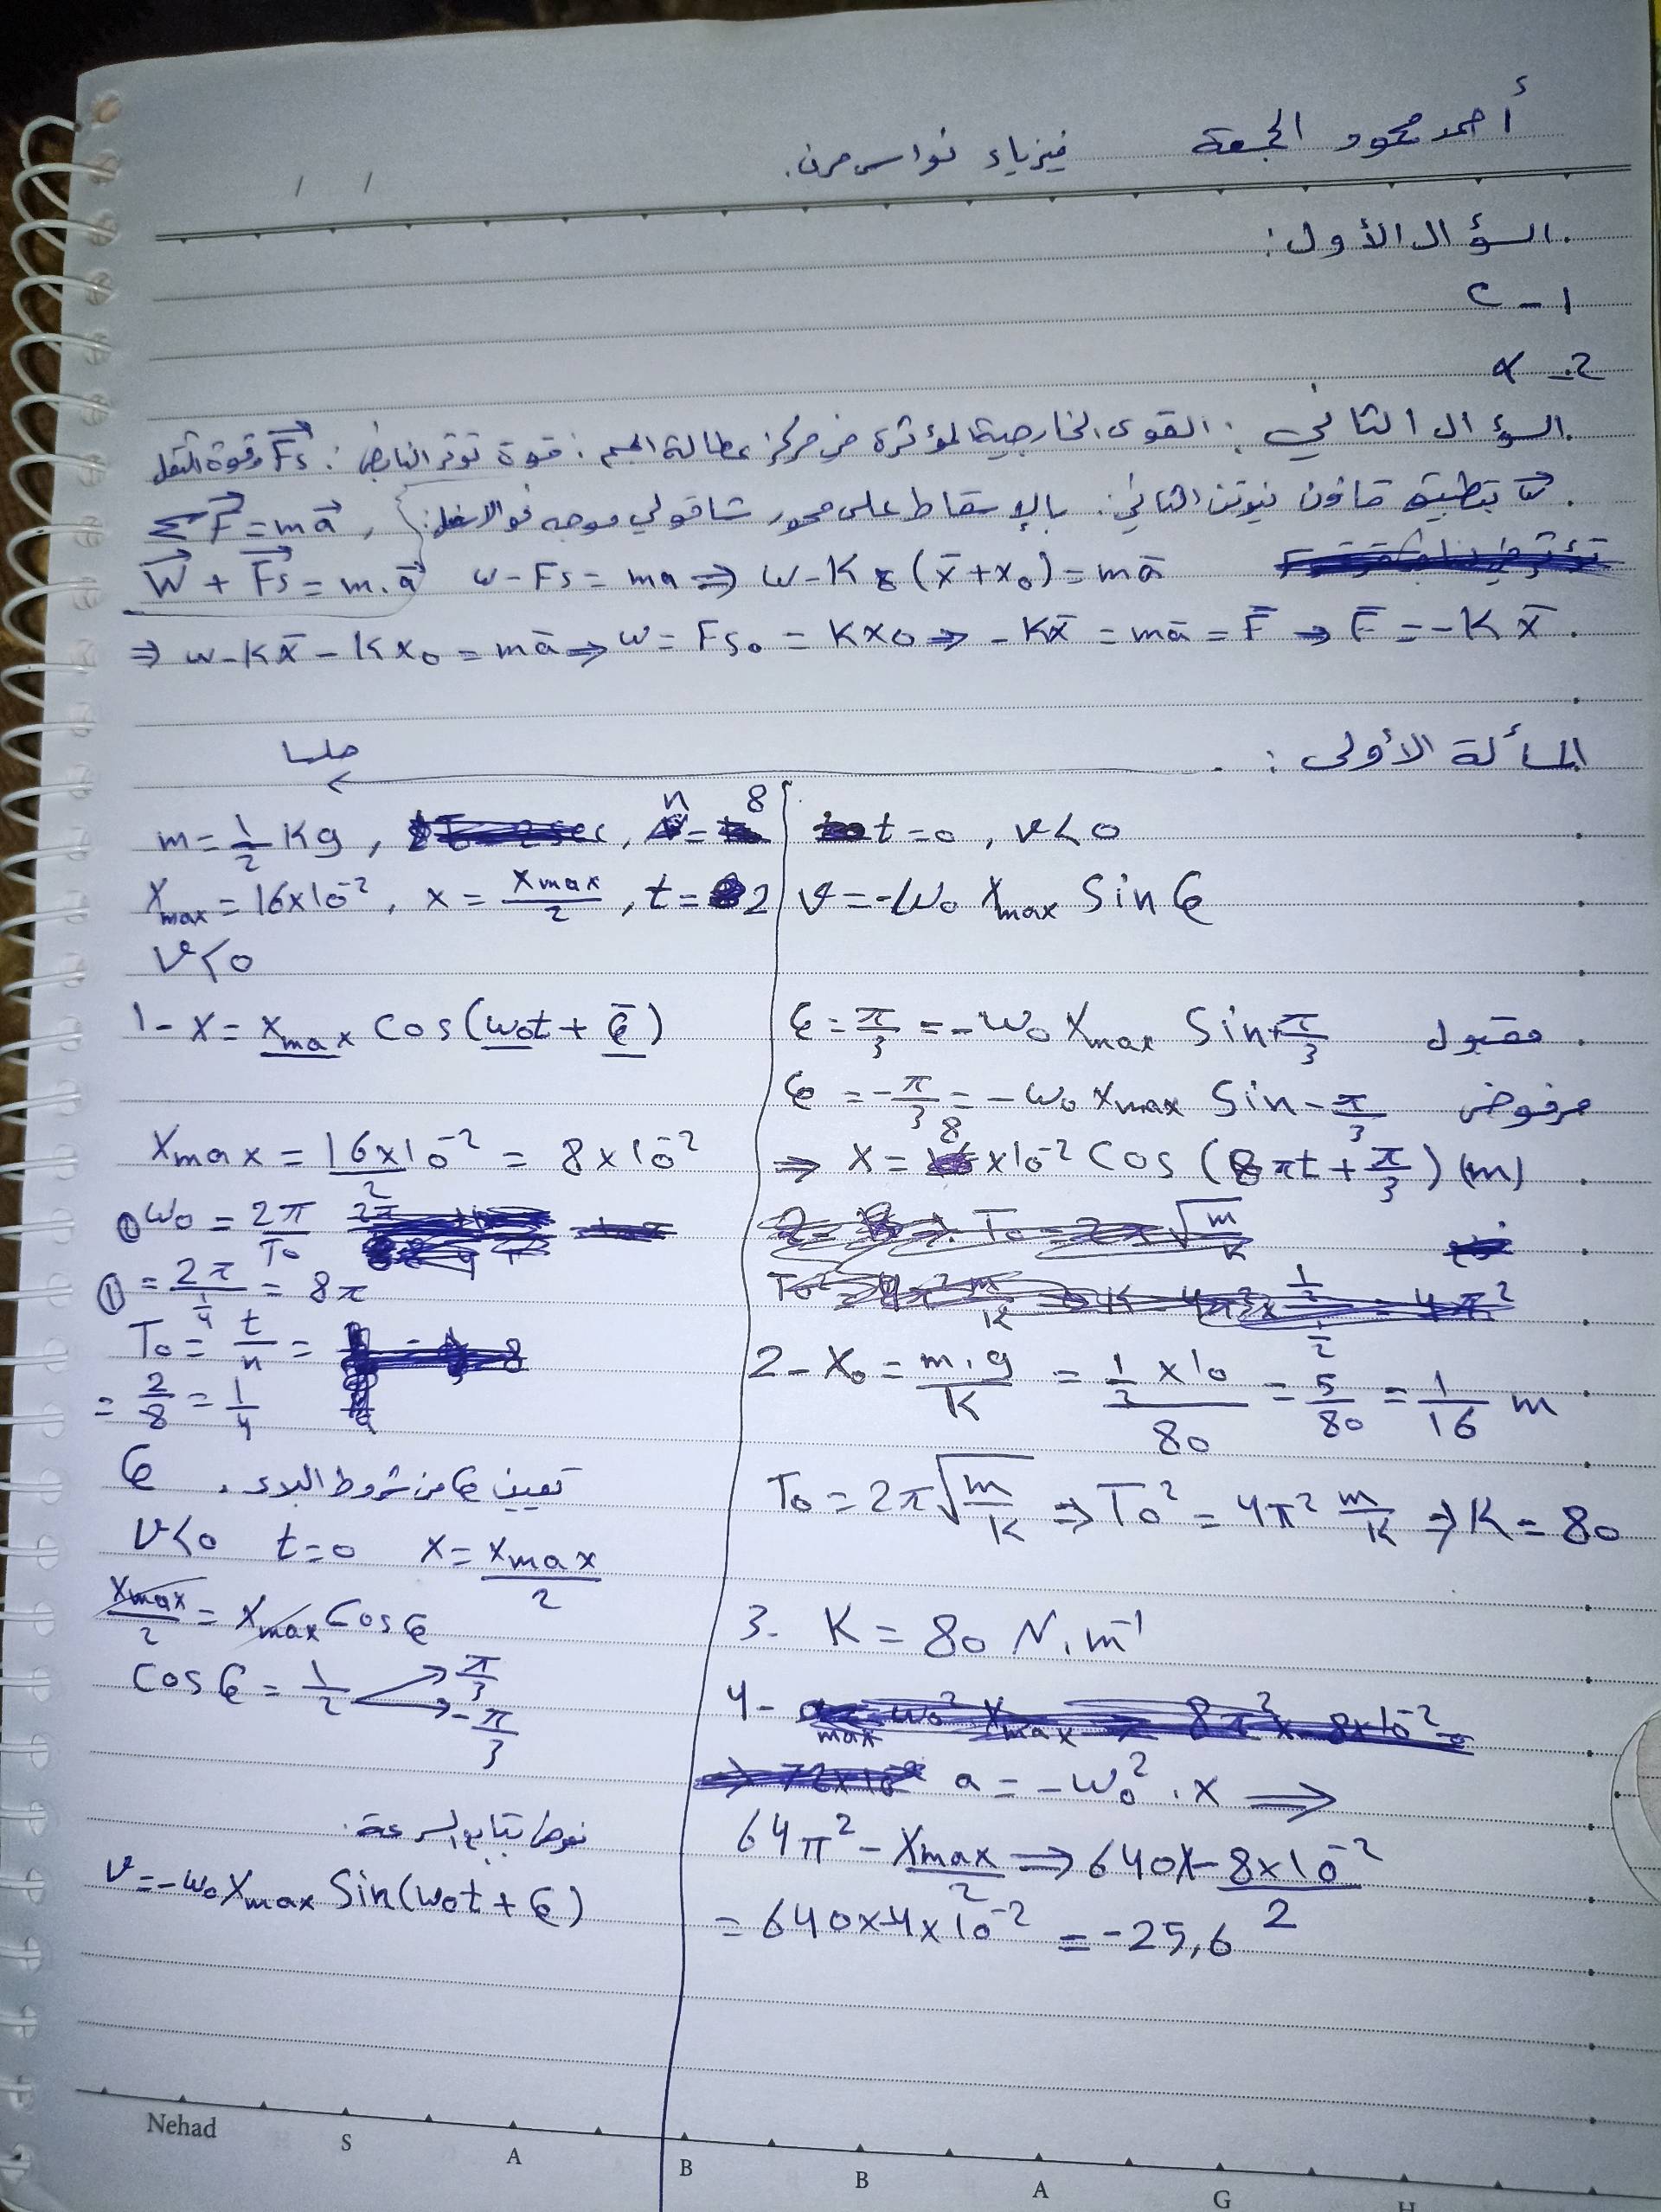 أحمد محمود الجمعة فيزياء نواس مرن.
السؤال الأول:
1 - C
2 - a
السؤال الثاني: القوى الخارجية المؤثرة في مركز عطالة الجسم: قوة توتر النابض: Fs وقوة الثقل
W بتطبيق قانون نيوتن الثاني: بالإسقاط على محور شاقولي موجه نحو الاسفل: , ΣF = ma
W + Fs = m.a w - Fs = ma ⇒ w - K (x̄ + x₀) = mā
⇒ w - Kx̄ - Kx₀ = mā ⇒ w = Fs₀ = Kx₀ ⇒ -Kx̄ = mā = F̄ ⇒ F̄ = -Kx̄.
المسألة الأولى:
حلها
m = 1/2 Kg , n = 8
Xmax = 16×10⁻² , x = Xmax/2 , t = 2
v<0
1 - x = xmax Cos(ω₀t + φ̄)
Xmax = 16×10⁻²/2 = 8×10⁻²
① ω₀ = 2π/T₀
① = 2π/(1/4) = 8π
T₀ = t/n =
= 2/8 = 1/4
φ تعيين φ من شروط البدء.
v<0 t=0 x = xmax/2
xmax/2 = xmax Cosφ
Cosφ = 1/2 π/3
-π/3
نعوض بتابع السرعة:
v = -ω₀ Xmax Sin(ω₀t + φ)
t=0 , v<0
v = -ω₀ Xmax Sinφ
φ = π/3 = -ω₀ Xmax Sin+π/3 مقبول
φ = -π/3 = -ω₀ Xmax Sin-π/3 مرفوض
⇒ x = 8×10⁻² Cos(8πt + π/3) (m)
2 - X₀ = m.g/K = (1/2 × 10)/80 = 5/80 = 1/16 m
T₀ = 2π√(m/K) ⇒ T₀² = 4π² m/K ⇒ K = 80
3 - K = 80 N.m⁻¹
4 -
a = -ω₀² . x ⇒
64π² - Xmax/2 ⇒ 640×-8×10⁻²/2
= 640×-4×10⁻² = -25,6
Nehad
S A B B A G H